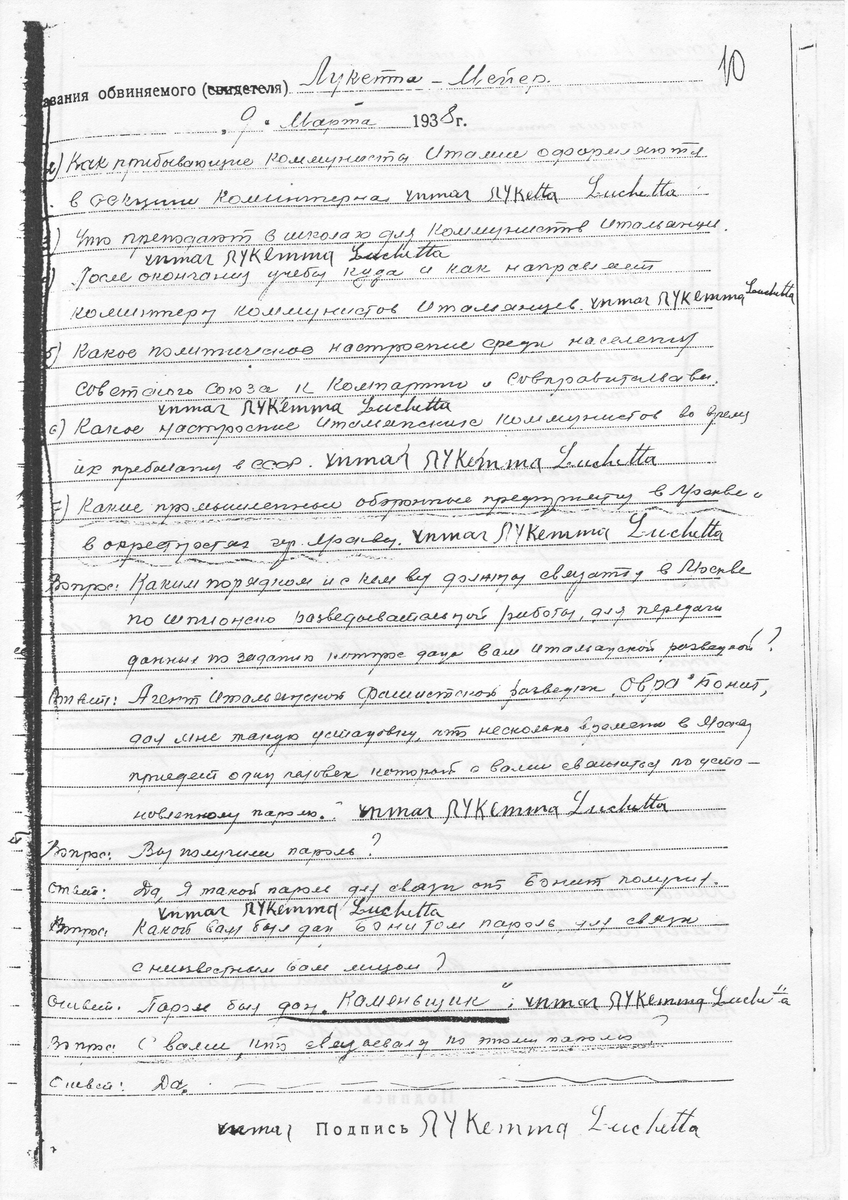 10
зания обвиняемого (свидетеля) Лукетта – Мейер.
„ 9 " Марта 1938 г.
2) Как прибывающие коммунисты Италии оформляются
в секции Коминтерна читал Лукетта Luchetta
) Что преподают в школах для коммунистов Итальянци.
читал Лукетта Luchetta
) После окончания учебы куда и как направляет
коминтерн коммунистов Итальянцев. читал Лукетта Luchetta
5) Какое политическое настроение среди населения
Советского Союза к Компартии и Совправительства.
читал Лукетта Luchetta
6) Какое настроение Итальянских коммунистов во время
их пребывания в СССР. читал Лукетта Luchetta
7) Какие промышленные оборонные предприятия в Москве и
в окрестностях гор. Москвы. читал Лукетта Luchetta
Вопрос: Каким порядком и с кем вы должны связаться в Москве
по шпионско разведывательной работы, для передачи
данных по заданию которое дано вам итальянской разведкой?
Ответ: Агент Итальянской фашистской разведки „Овра" Бонит,
дал мне такую установку, что несколько времени в Москву
приедет один человек который с вами свяжиться по уста-
новленному паролю. читал Лукетта Luchetta
Вопрос: Вы получили пароль?
Ответ: Да, Я такой пароль для связи от Бонит получил.
читал Лукетта Luchetta
Вопрос: Какой вам был дан Бонитом пароль для связи
с неизвестным вам лицом?
Ответ: Пароль был дан „Каменьщик"; читал Лукетта Luchetta
Вопрос: С вами кто связывался по этому паролю?
Ответ: Да,
читал Подпись Лукетта Luchetta